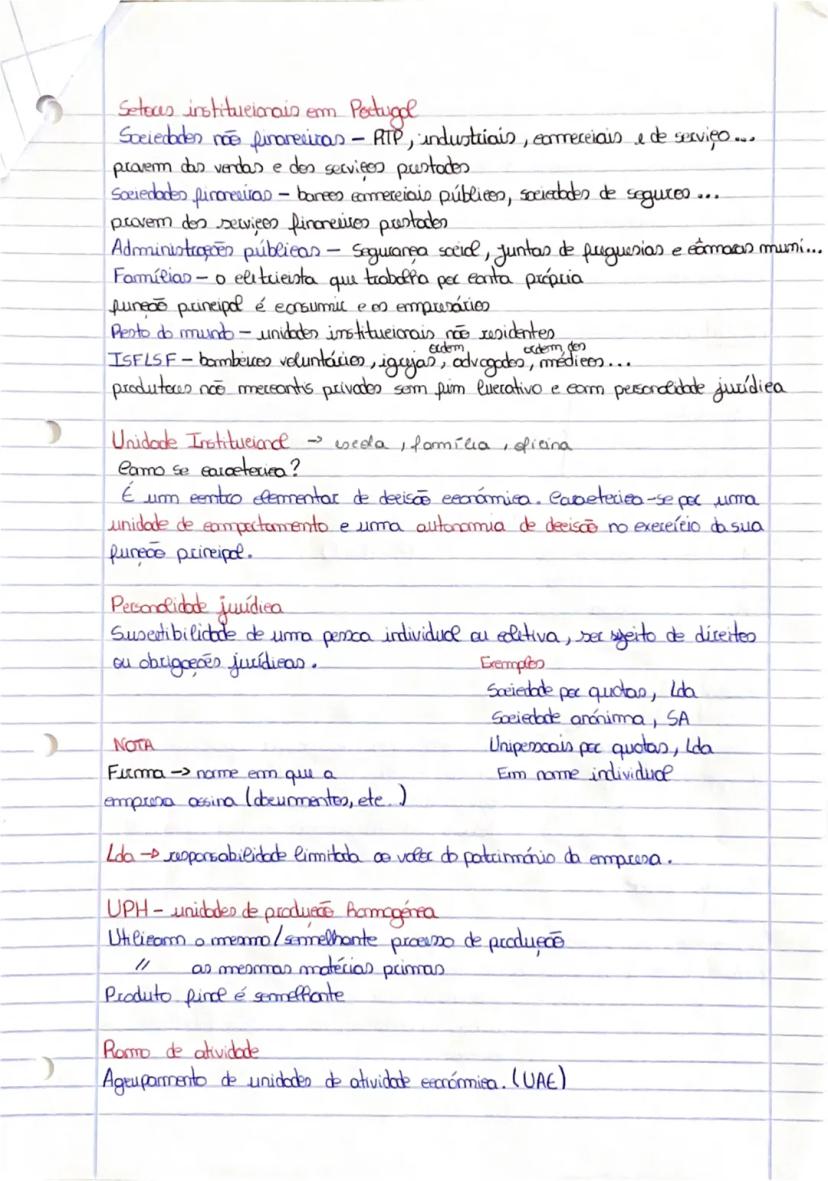 Setores institucionais em Portugal
Sociedades não financeiras – RTP, industriais, comerciais e de serviço...
provem das vendas e dos serviços prestados
Sociedades financeiras – bancos comerciais públicos, sociedades de seguros ...
provem dos serviços financeiros prestados
Administrações públicas – Segurança social, juntas de freguesias e câmaras muni...
Famílias – o eletricista que trabalha por conta própria
função principal é consumir e os empresários
Resto do mundo – unidades institucionais não residentes
ISFLSF – bombeiros voluntários, igrejas, ordem advogados, ordem dos médicos...
produtores não mercantis privados sem fim lucrativo e com personalidade jurídica
Unidade Institucional → escola, família, oficina
Como se caracteriza?
É um centro elementar de decisão económica. Caracteriza-se por uma
unidade de comportamento e uma autonomia de decisão no exercício da sua
função principal.
Personalidade jurídica
Suscetibilidade de uma pessoa individual ou coletiva, ser sujeito de direitos
ou obrigações jurídicas.
Exemplos
Sociedade por quotas, Lda
Sociedade anónima, SA
Unipessoais por quotas, Lda
Em nome individual
NOTA
Firma → nome em que a
empresa assina (documentos, etc.)
Lda → responsabilidade limitada ao valor do património da empresa.
UPH – unidades de produção homogénea
Utilizam o mesmo/semelhante processo de produção
" as mesmas matérias primas
Produto final é semelhante
Ramo de atividade
Agrupamento de unidades de atividade económica. (UAE)